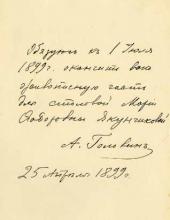 Обязуюсь к 1 Июля
1899 г. окончить всю
живописную часть
для столовой Маріи
Ѳедоровны Якунчиковой
А. Головинъ
25 Апрѣля 1899 г.